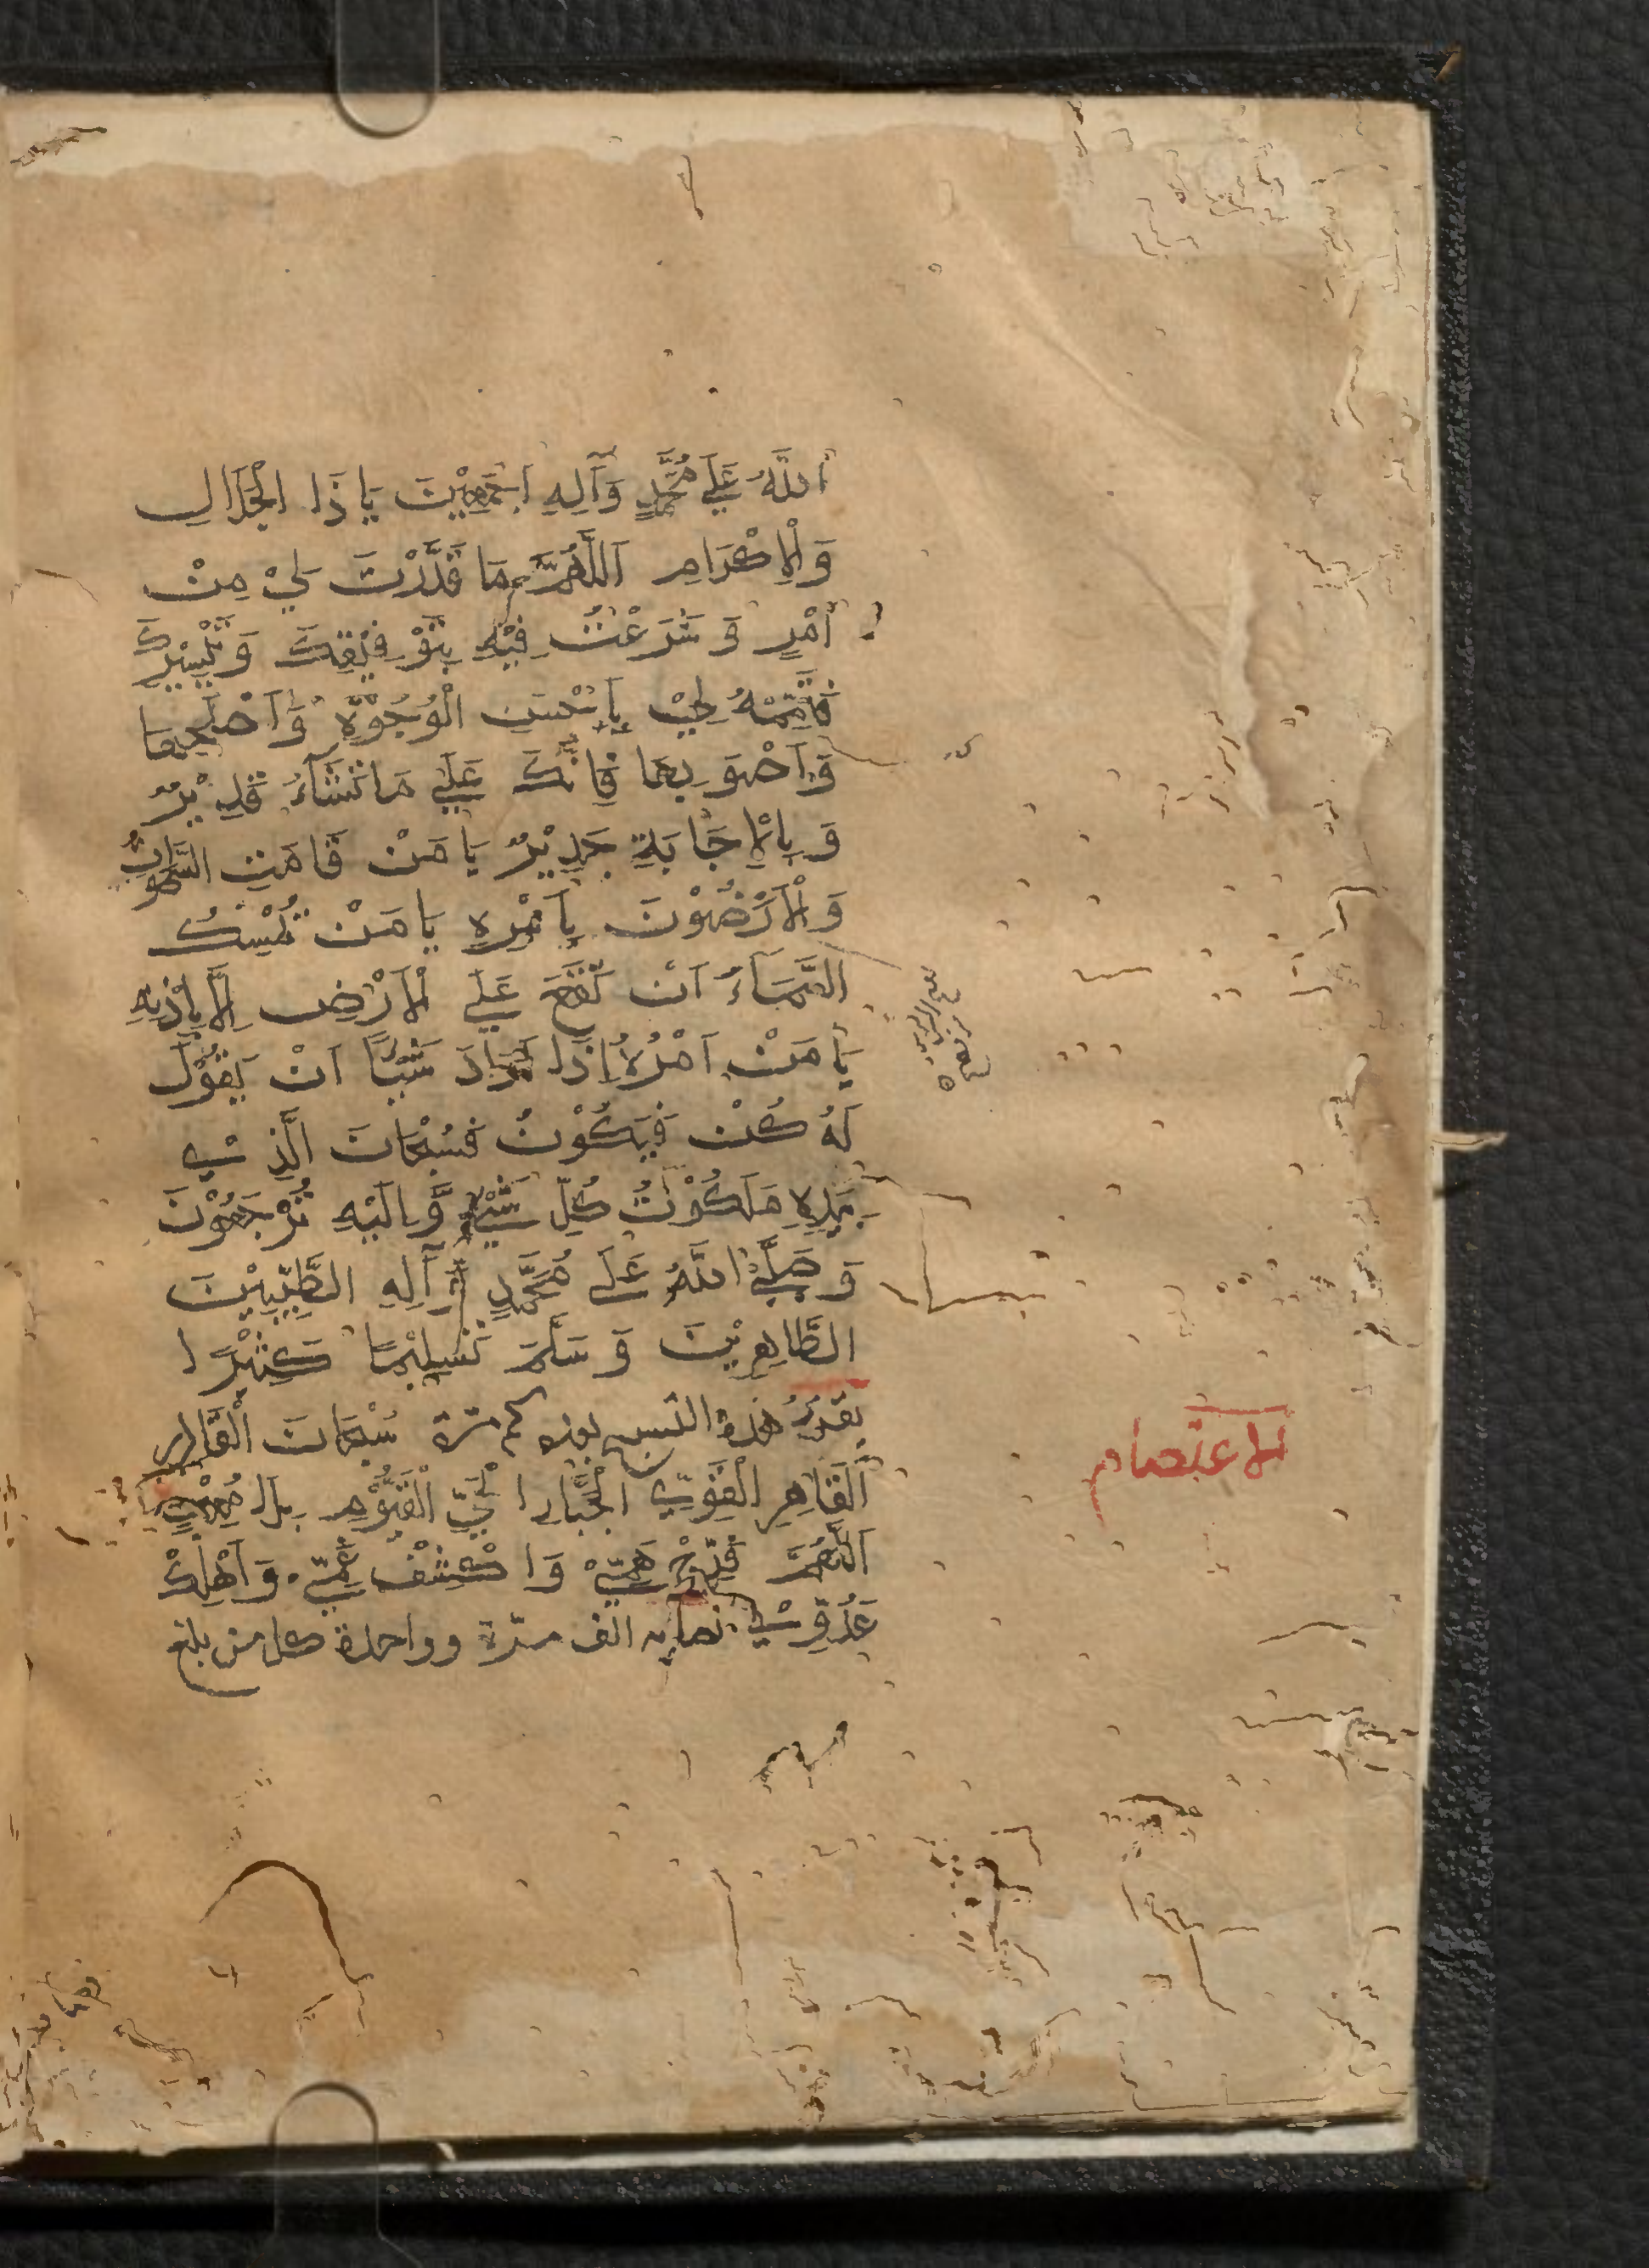 اَللّٰهُ عَلَى مُحَمَّدٍ وَآلِهِ اَجْمَعِيْنَ يَا ذَا الْجَلَالِ
وَالْاِكْرَامِ اَللّٰهُمَّ مَا قَدَّرْتَ لِيْ مِنْ
اَمْرٍ وَشَرَعْتُ فِيْهِ بِتَوْفِيْقِكَ وَتَيْسِيْرِكَ
فَاَتِمَّهُ لِيْ بِاَحْسَنِ الْوُجُوْهِ وَاَصْلَحِهَا
وَاَصْوَبِهَا فَاِنَّكَ عَلَى مَا تَشَآءُ قَدِيْرٌ
وَبِالْاِجَابَةِ جَدِيْرٌ يَا مَنْ قَامَتِ السَّمٰوَاتُ
وَالْاَرَضُوْنَ بِاَمْرِهِ يَا مَنْ يُمْسِكُ
السَّمَآءَ اَنْ تَقَعَ عَلَى الْاَرْضِ اِلَّا بِاِذْنِهِ
يَا مَنْ اَمْرُهُ اِذَا اَرَادَ شَيْئًا اَنْ يَقُوْلَ
لَهُ كُنْ فَيَكُوْنُ فَسُبْحَانَ الَّذِيْ
بِيَدِهِ مَلَكُوْتُ كُلِّ شَيْءٍ وَّاِلَيْهِ تُرْجَعُوْنَ
وَصَلَّى اللّٰهُ عَلَى مُحَمَّدٍ وَآلِهِ الطَّيِّبِيْنَ
الطَّاهِرِيْنَ وَسَلَّمَ تَسْلِيْمًا كَثِيْرًا
هذه مرّة سُبْحَانَ الْقَادِرِ
اَلْقَاهِرِ الْقَوِيِّ الْجَبَّارِ الْحَيِّ الْقَيُّوْمِ بِلَا مُعِيْنٍ
اَللّٰهُمَّ فَرِّجْ هَمِّيْ وَاكْشِفْ غَمِّيْ وَاَهْلِكْ
عَدُوِّيْ نصابه الف مرّة وواحدة كل من بلغ
الاعتصام